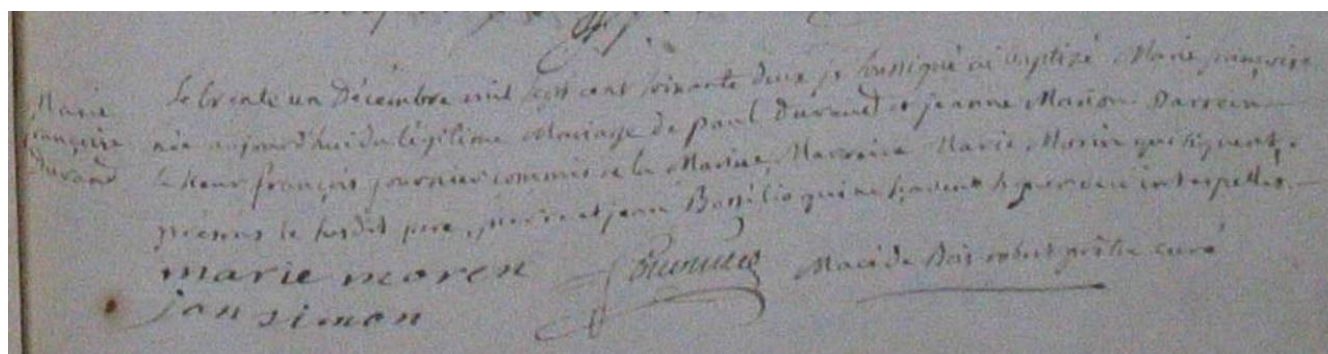 Marie
françoise
Durand
Le trente un Décembre mil sept cent soixante deux je soussigné ai baptizé Marie françoise
née aujourd'hui du légitime Mariage de paul Durand et jeanne Marion Parrein
le sieur françois fournier commis de la Marine, Marreine Marie Morin qui signent,
présens le susdit pere, pierre et jean Bassilio qui ne savent signer de ce interpellés.
marie moren fournier Macé de Bois robert prêtre curé
jan simon